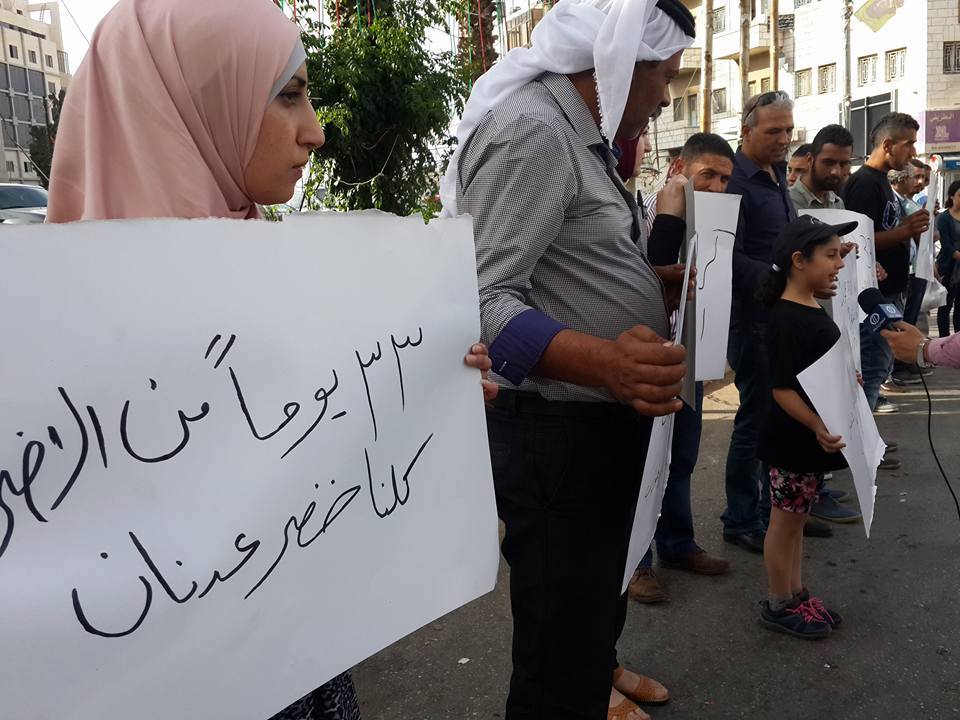 ٣٣ يوماً من الاضر
كلنا خضر عدنان